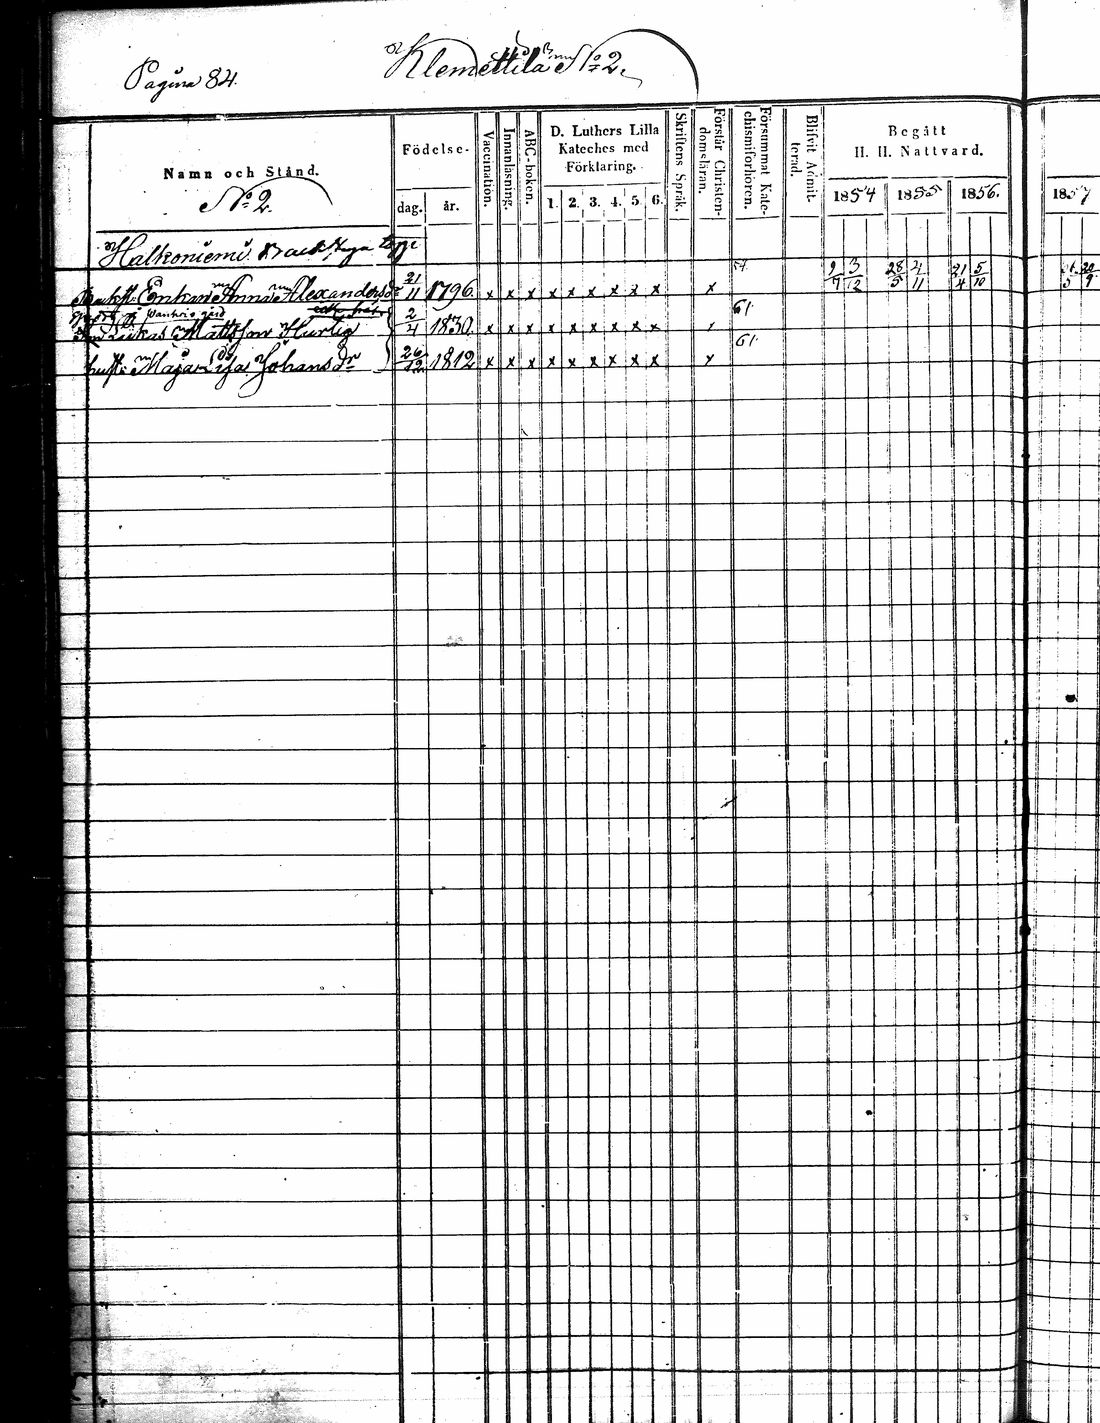 Pagina 84.
Klemettilä No 2.
Namn och Stånd.
No 2.
Födelse-
dag. år.
Vaccination.
Innanläsning.
ABC-boken.
D. Luthers Lilla
Kateches med
Förklaring.
1. 2. 3. 4. 5. 6.
Skriftens Språk.
Förstår Christen-
domsläran.
Försummat Kate-
chismiförhören.
Blifvit Admit-
terad.
Begått
H. H. Nattvard.
1854 1855 1856. 1857
Halkoniemi
Enkan Anna Alexandersdr 21/11 1796. x x x x x x x x x x 9/7 3/12 28/5 4/11 21/4 5/10
Lukas Mattsson Hurtig 2/4 1830. x x x x x x x x x 61.
hust. Maja Lisa Johansdr 26/12 1812 x x x x x x x x x x 61.